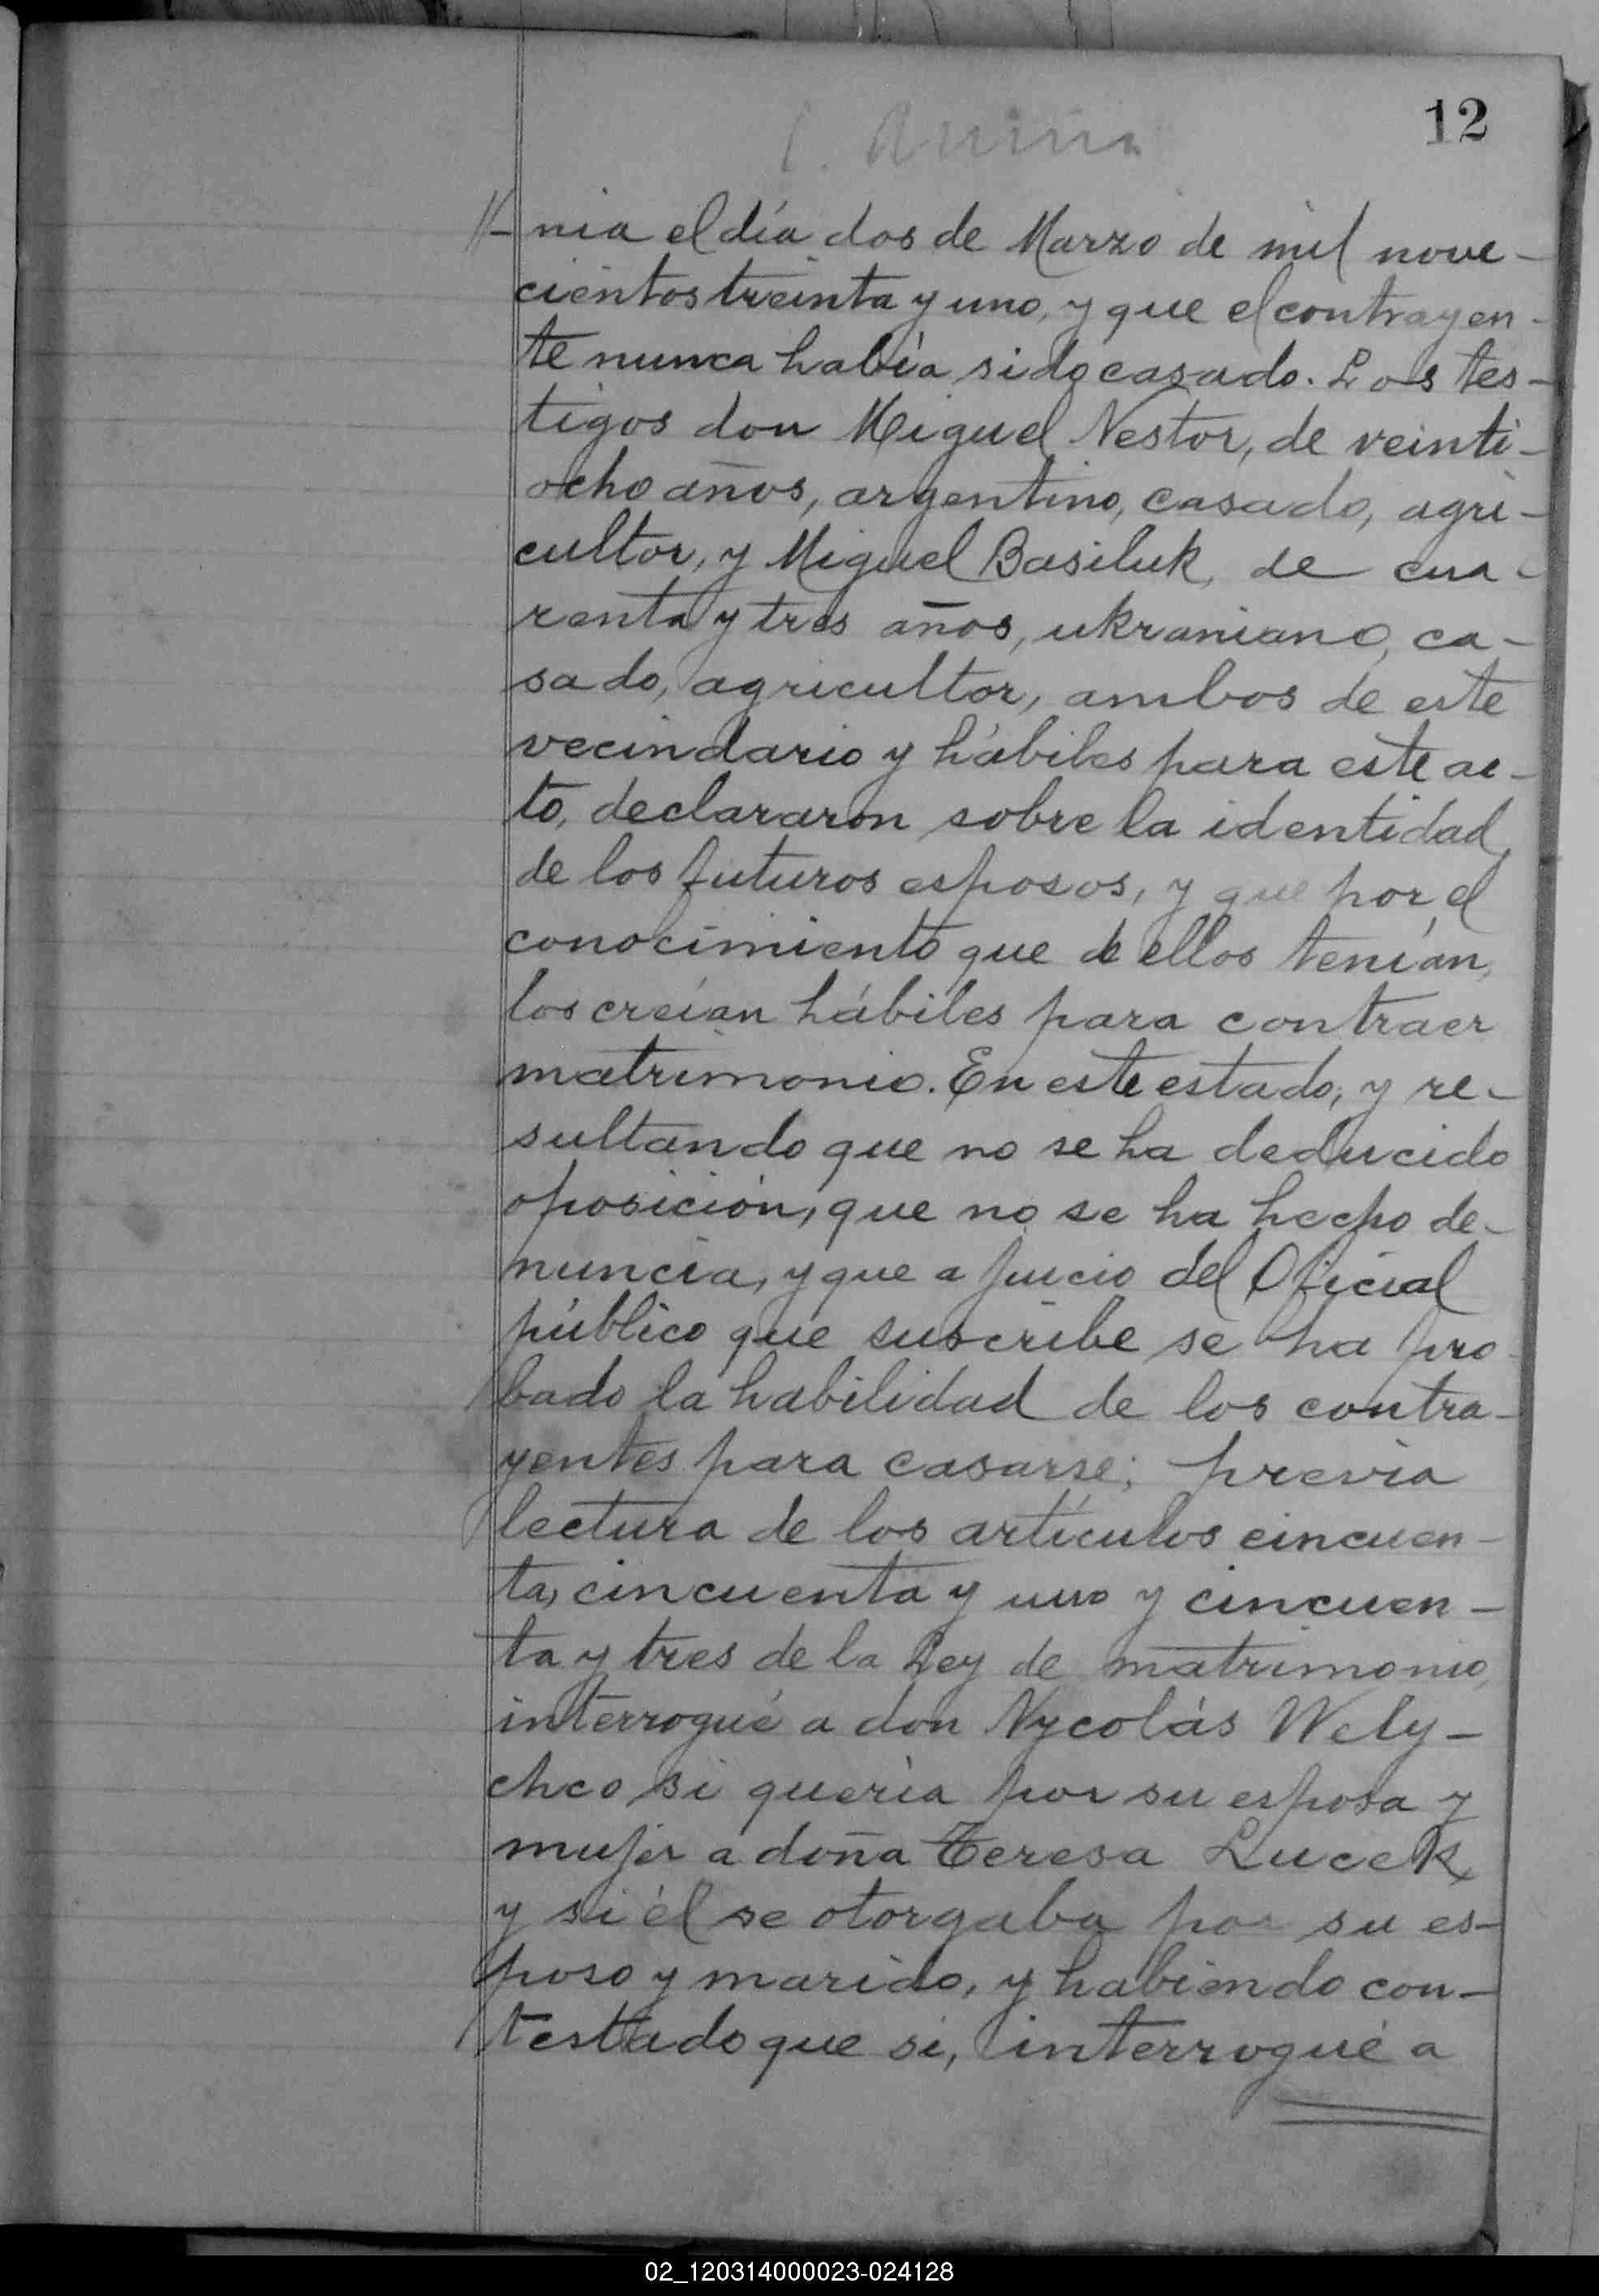 12
nia el día dos de Marzo de mil nove-
cientos treinta y uno, y que el contrayen-
te nunca había sido casado. Los tes-
tigos don Miguel Nestor, de veinti-
ocho años, argentino, casado, agri-
cultor, y Miguel Basiluk, de cua-
renta y tres años, ukraniano, ca-
sado, agricultor, ambos de este
vecindario y hábiles para este ac-
to, declararon sobre la identidad
de los futuros esposos, y que por el
conocimiento que de ellos tenían,
los creían hábiles para contraer
matrimonio. En este estado, y re-
sultando que no se ha deducido
oposición, que no se ha hecho de-
nuncia, y que a juicio del Oficial
público que suscribe se ha pro-
bado la habilidad de los contra-
yentes para casarse; previa
lectura de los artículos cincuen-
ta, cincuenta y uno y cincuen-
ta y tres de la Ley de matrimonio,
interrogué a don Nycolás Wely-
chco si quería por su esposa y
mujer a doña Teresa Lucek,
y si él se otorgaba por su es-
poso y marido, y habiendo con-
testado que sí, interrogué a
02_120314000023-024128